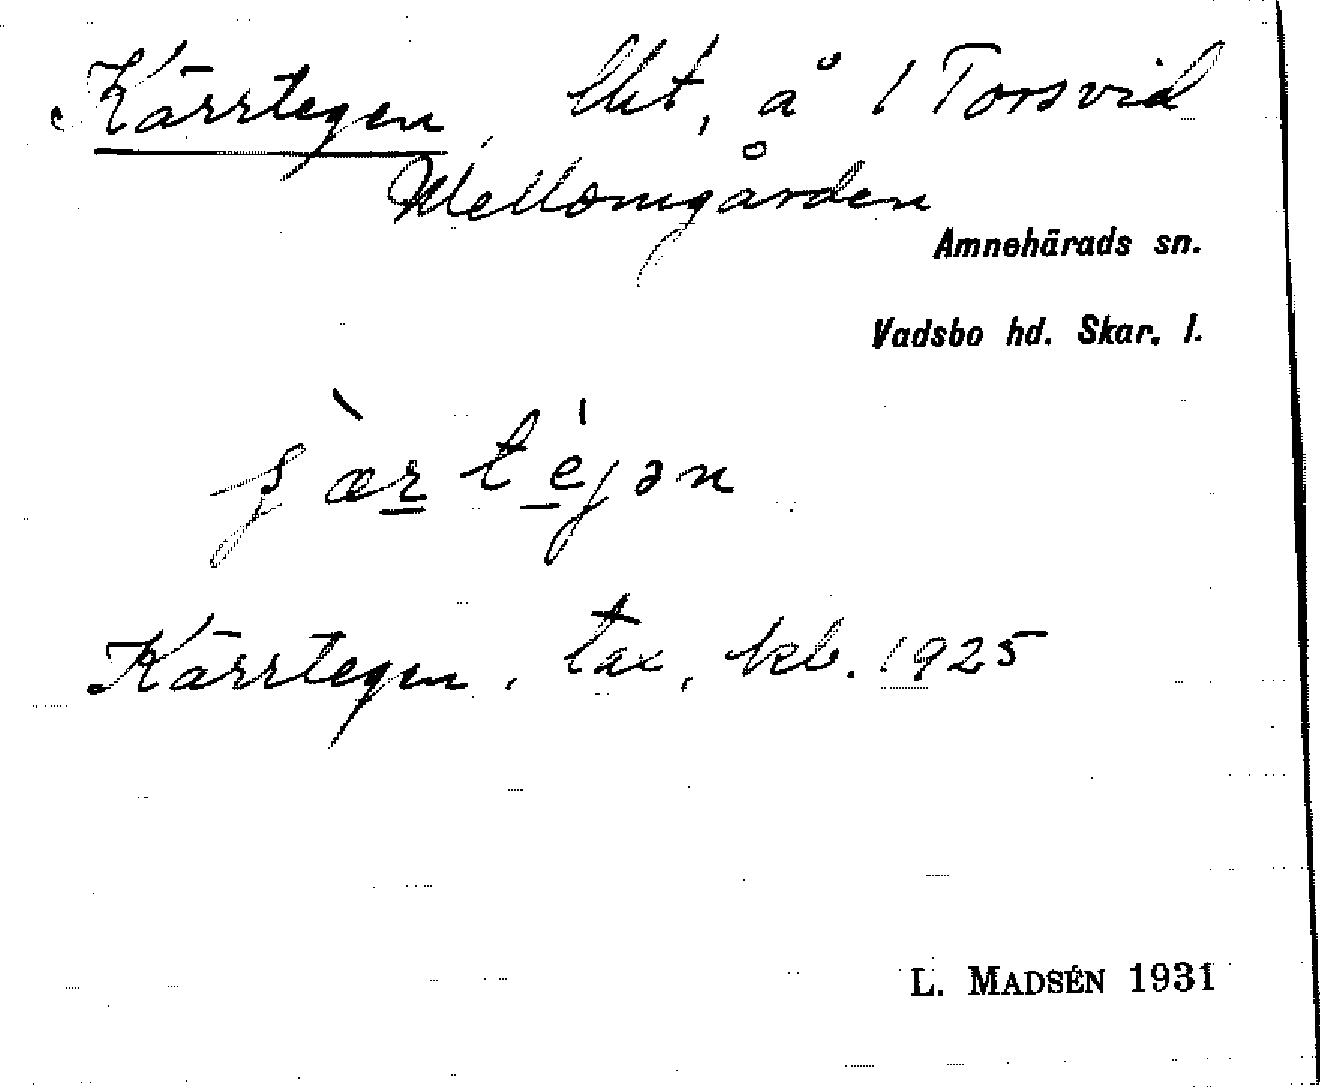 Kärrtegen, lht, å 1 Torsvid
Mellomgården
Amnehärads sn.
Vadsbo hd. Skar. l.
Kärrtegen, tax, kb. 1925
L. MADSÉN 1931